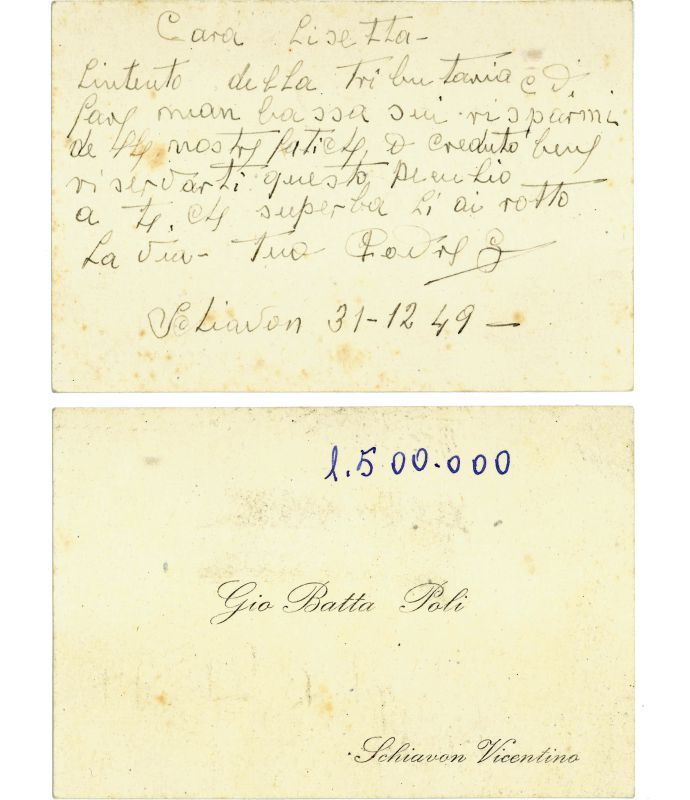 Cara Lisetta-
Lintento della tributaria è di
fare man bassa sui risparmi
delle nostre fatiche, ò creduto bene
riservarti questo peculio
a te, che superba li ai rotto
la via- tuo Padre
Schiavon 31-12 49 —
l. 500.000
Gio Batta Poli
Schiavon Vicentino